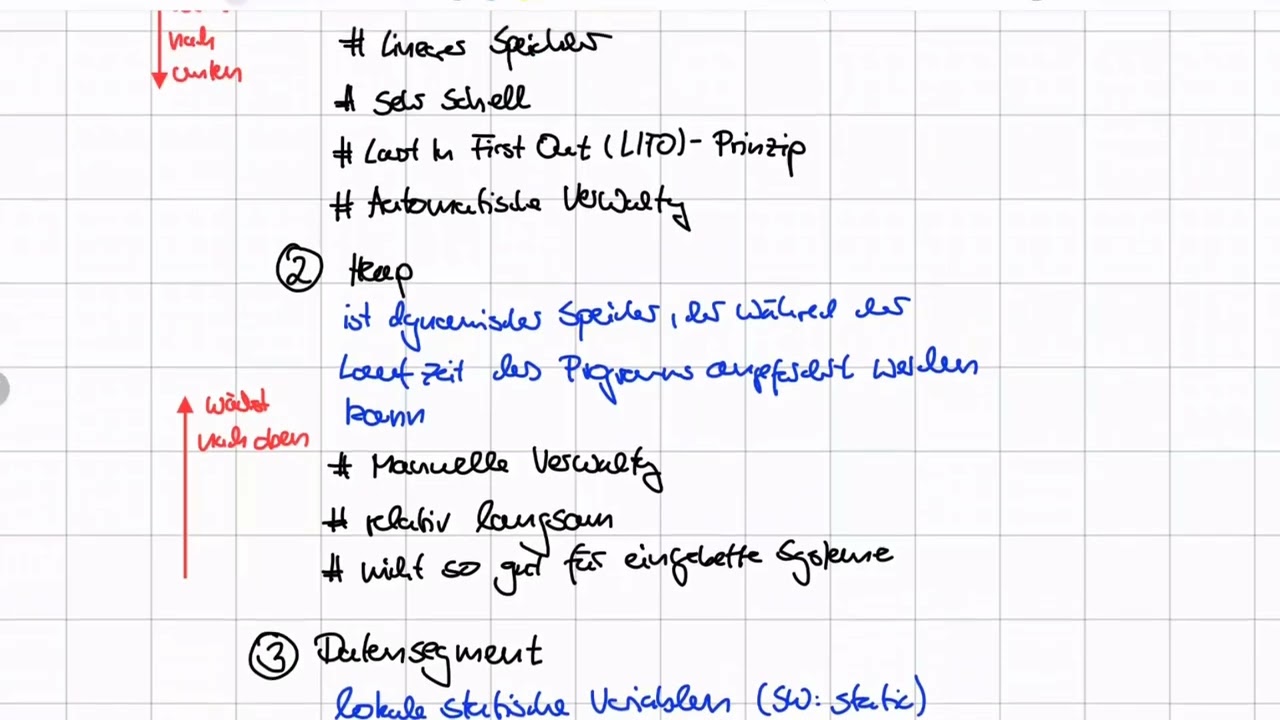 nach
unten
# Lineares Speicher
# Sehr Schell
# Last In First Out (LIFO)-Prinzip
# Automatische Verwaltg
② Heap
ist dynamischer Speicher, der während der
Laufzeit des Programms angefordert werden
kann
wächst
nach oben
# Manuelle Verwaltg
# relativ langsam
# nicht so gut für eingebette Systeme
③ Datensegment
lokale statische Variablen (SW: static)